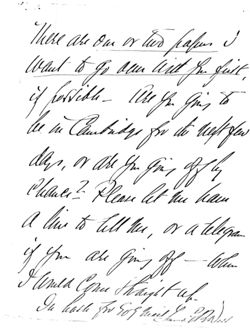 There are one or two papers I
want to go over with you first
if possible – Are you going to
be in Cambridge for the next few
days, or are you going off by
chance? Please let me have
a line to tell me, or a telegram
if you are going off – when
I would come straight up.
In haste for post